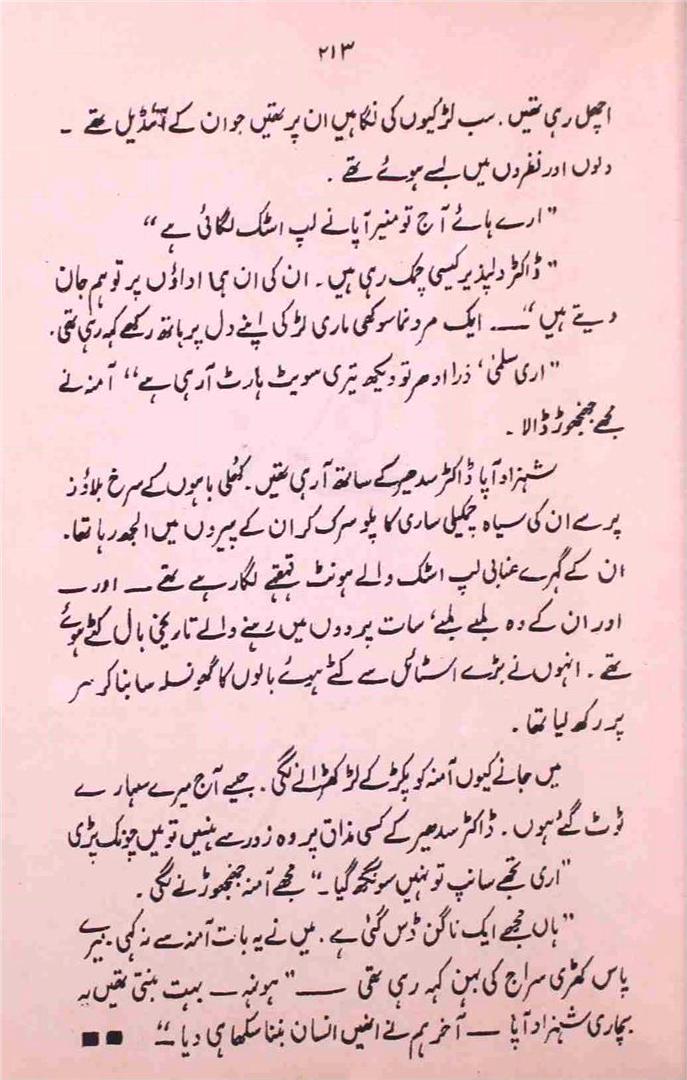 ۲۱۳
اچھل رہی تھیں . سب لڑکیوں کی نگاہیں ان پر تھیں جو ان کے آئڈیل تھے ۔
دلوں اور نظروں میں بسے ہوئے تھے .
"ارے ہائے آج تو منیر آپا نے لپ اسٹک لگائی ہے"
"ڈاکٹر دلپذیر کیسی چمک رہی ہیں۔ ان کی ان ہی اداؤں پر تو ہم جان
دیتے ہیں" ــــ ایک مردنما سوکھی ماری لڑکی اپنے دل پر ہاتھ رکھے کہہ رہی تھی.
"اری سلمیٰ، ذرا ادھر تو دیکھ تیری سویٹ ہارٹ آرہی ہے" آمنہ نے
مجھے جھنجھوڑ ڈالا ۔
شہزاد آپا ڈاکٹر سدھیر کے ساتھ آرہی تھیں . کھلی باہوں کے سرخ بلاؤز
پر سے ان کی سیاہ چمکیلی ساری کا پلو سرک کر ان کے پیروں میں الجھ رہا تھا.
ان کے گہرے عنابی لپ اسٹک والے ہونٹ قہقہے لگا رہے تھے ـــ اور ــــ
اور ان کے وہ لمبے لمبے، سات پردوں میں رہنے والے تاریخی بال کٹے ہوئے
تھے . انہوں نے بڑے اسٹائل سے کٹے ہوئے بالوں کا گھونسلہ سا بنا کر سر
پر رکھ لیا تھا .
میں جانے کیوں آمنہ کو پکڑ کے لڑکھڑانے لگی . جیسے آج میرے سہارے
ٹوٹ گئے ہوں . ڈاکٹر سدھیر کے کسی مذاق پر وہ زور سے ہنسیں تو میں چونک پڑی
"اری تجھے سانپ تو نہیں سونگھ گیا ـ" مجھے آمنہ جھنجھوڑنے لگی .
"ہاں مجھے ایک ناگن ڈس گئی ہے . میں نے یہ بات آمنہ سے نہ کہی میرے
پاس کھڑی سراج کی بہن کہہ رہی تھی ــــــ "ہونہہ ـــ بہت بنتی تھیں یہ
بچاری شہزاد آپا ـــ آخر ہم نے انہیں انسان بننا سکھا ہی دیا ـ"